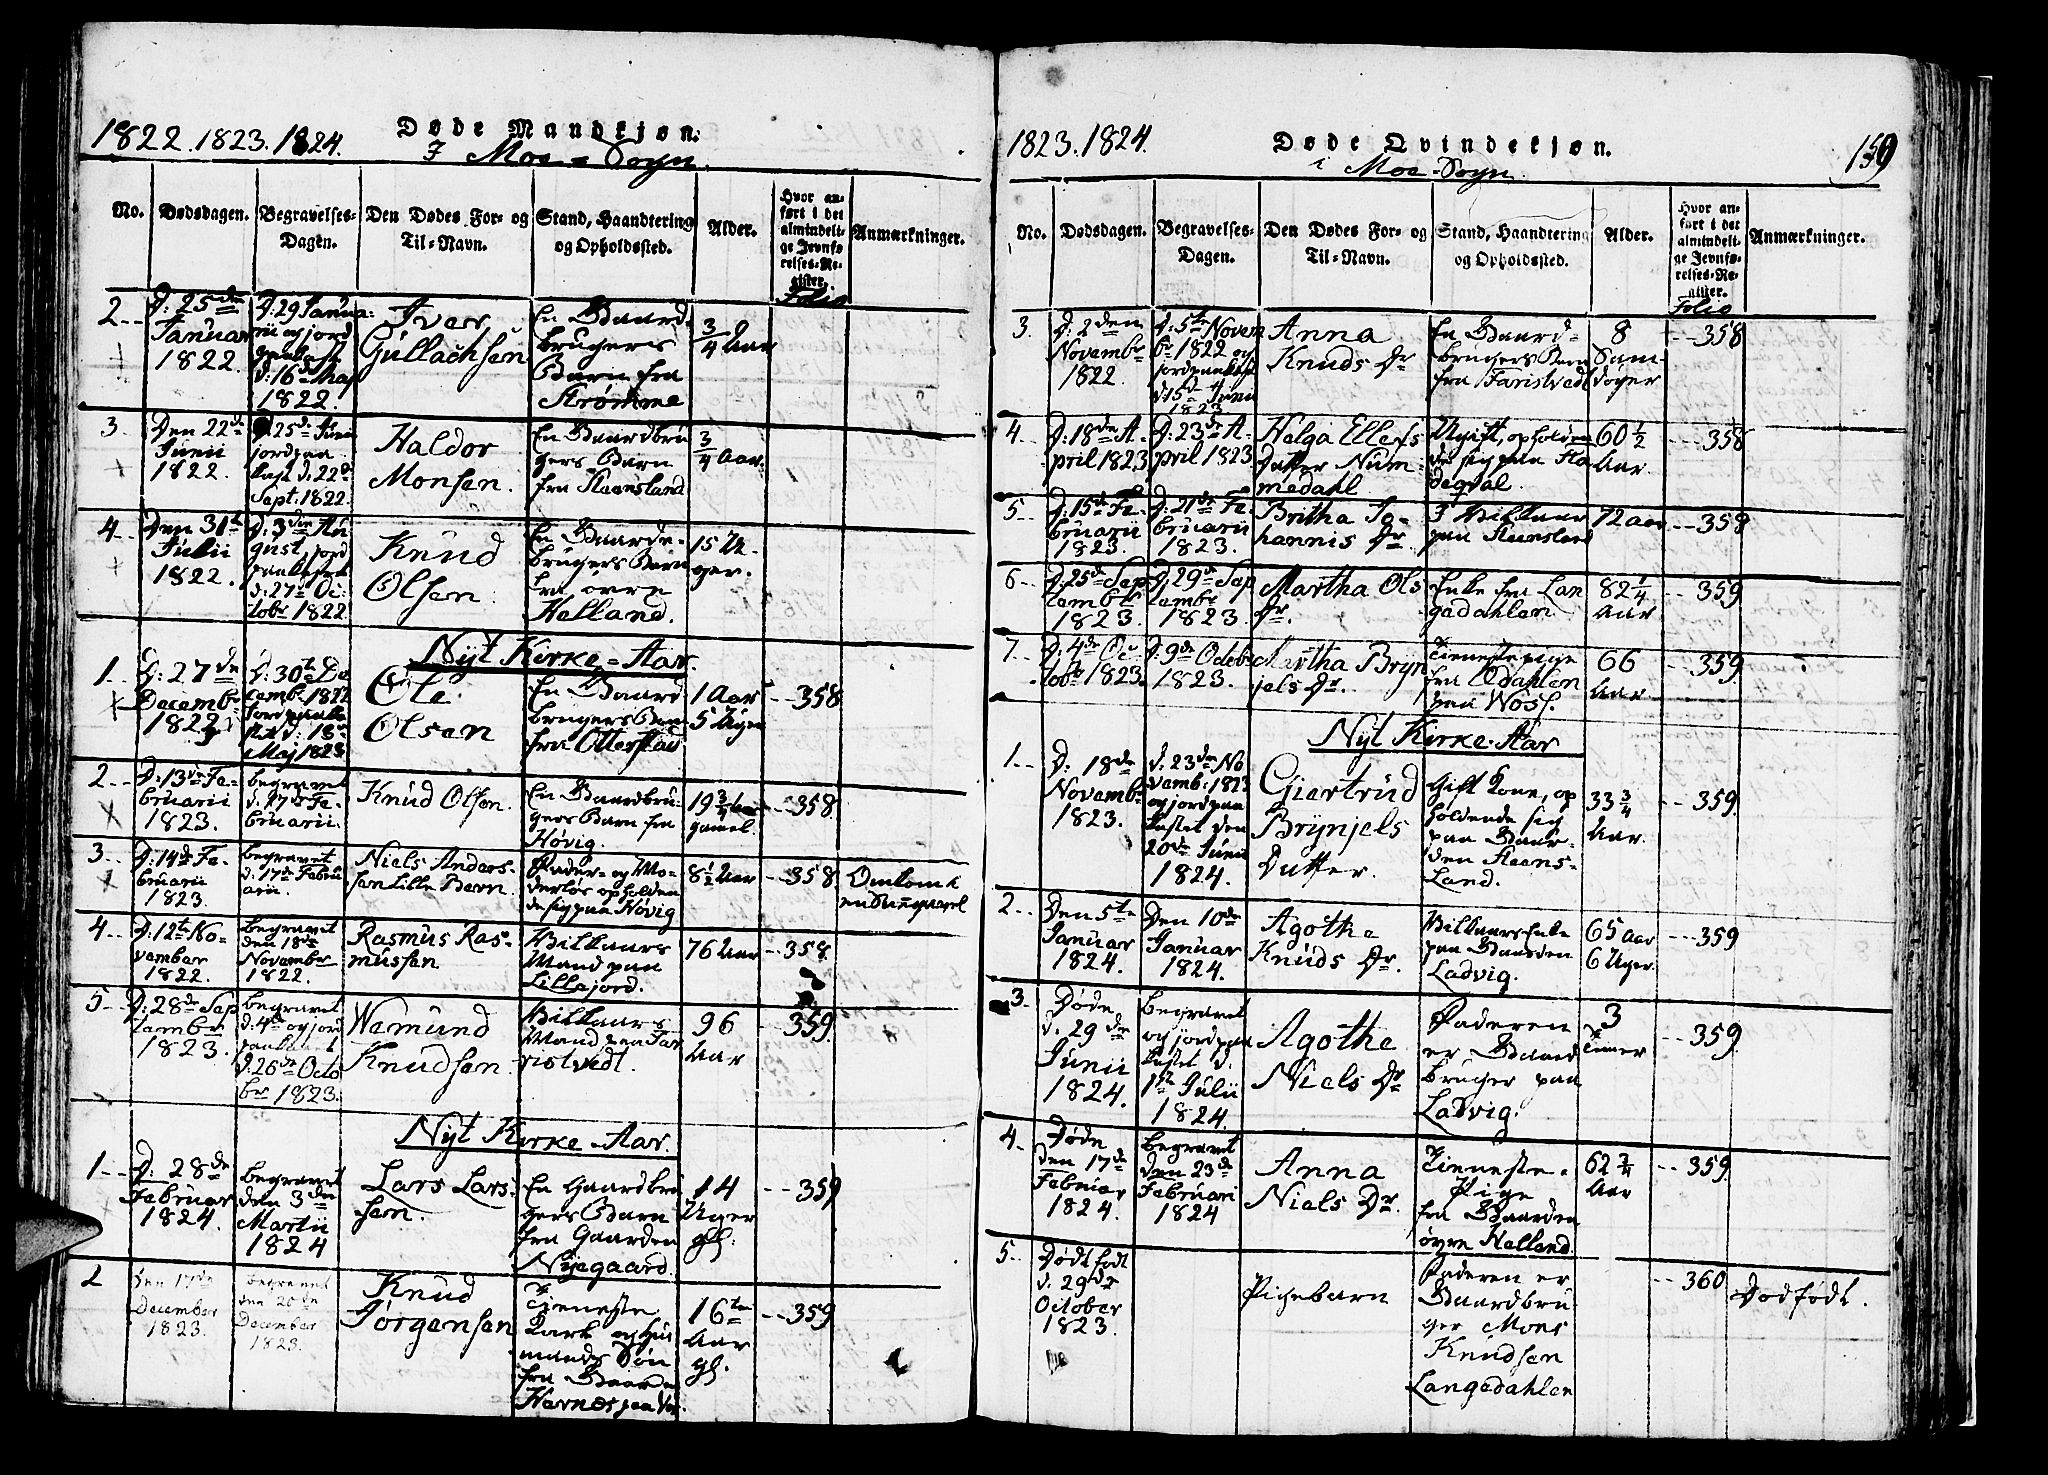 1822. 1823. 1824.
Døde Mandkjøn.
I Moe-Sogn.
No.
Dødsdagen.
Begravelses-
Dagen.
Den Dødes For- og
Til-Navn.
Stand, Haandtering
og Opholdssted.
Alder.
Hvor an-
ført i det
almindeli-
ge Jevnfø-
relses-Re-
gister.
Folio
Anmærkninger.
2
D: 25de
Januar
1822.
D: 29 Janua-
rii og jord
d: 16de Maj
1822.
Iver
Gullachsen
En Gaard-
brugers
Barn fra
Strømme
3/4 Aar
3
Den 22de
Junii
1822.
D. 25de Junii
jordpaa
kast d. 22de
Sept. 1822.
Haldor
Monsen.
En Gaardbru
gers Barn
fra Steensland
3/4 Aar.
4
Den 31te
Julii
1822.
D. 3den Au
gust, jord
paakastet
d: 27de Oc:
tobr 1822
Knud
Olsen.
En Gaard-
brugers Barn
fra øvre
Helland.
15 U-
ger.
Nyt Kirke-Aar.
1
D: 27de
Decembr
1822
D: 30te De
cembr. 1822
jordpaaka
stet d: 18de
Maj 1823
Ole
Olsen
En Gaard
brugers Barn
fra Otterstad
1 Aar
5 Uger
358
2
D: 13de Fe-
bruarii
1823.
begravet
d. 17de Fe-
bruarii.
Knud Olsen.
En Gaardbru-
gers Barn fra
Høvig.
19 3/4
gamel.
358
3
D: 14de Fe-
bruarii
1823.
begravet
d. 17de Febru
arii.
Niels Anders-
sen Lille Bern.
Fader- og Mo-
derløs opholden
de sig paa Høvig
8 1/2 Aar
358
Omkom i
en
4
D: 12te No-
vember
1822.
begravet
den 18de
Novembr
1822.
Rasmus Ras-
mussen
Vilkaars
Mand paa
Lillejord.
76 Aar
358.
5
D: 28de Sep
tembr
1823.
begravet
d. 4de og jord
paakastet
d: 26de Octo
br 1823.
Wemund
Knudsen.
Vilkaars
Mand paa Far
ristvedt.
96
Aar
359.
Nyt Kirke-Aar.
1
D. 28de
Februar
1824.
begravet
den 3den
Martii
1824
Lars Lars-
sen.
En Gaardbru
gers Barn
fra Gaarden
Nyegaard.
14
Uger
gl.
359
2
Den 17de
December
1823.
begravet
den 20de
December
1823.
Knud
Jørgensen
Tieneste
Karl og Huus
mands Søn
fra Gaarden
Hernæs paa Vos
16ten
Aar
gl.
359
1823. 1824.
Døde Qvindekjøn.
i Moe-Sogn.
159
No.
Dødsdagen.
Begravelses-
Dagen.
Den Dødes For- og
Til-Navn.
Stand, Haandtering
og Opholdssted.
Alder.
Hvor an-
ført i det
almindeli-
ge Jevnfø-
relses-Re-
gister.
Folio
Anmærkninger.
3.
D: 2den
Novembr
1822.
D: 5te Novem
br 1822 og
jordpaakast
d 15de Junii
1823
Anna
Knuds Dr
En Gaard-
brugers Barn
fra Faristvedt
8
Sam-
doger
358
4
D: 18de A-
pril 1823
D: 23de A-
pril 1823
Helga Ellefs
Datter Num-
medahl
Ugift, opholden
de sig paa Fla
degval.
60 1/2
Aar.
358
5
D: 15de Fe-
bruarii
1823.
D: 21de Fe-
bruarii
1823.
Britha Jo-
hannis Dr.
I Vilkaar
paa Steensland
72 aar
358
6
D. 25de Sep
tembr
1823.
D. 29de Sep
tembr
1823.
Martha Ols
Dr.
Enke fra Lan
gedahlen
82 1/4
Aar
359
7
D: 4de Oc
tobr 1823.
D: 9de Octobr
1823.
Martha Bryn
jels Dr.
Tienestepige
fra Ødahlen
paa Woss.
66
Aar
359
Nyt Kirke-Aar
1
D. 18de
Novembr
1823.
d. 23de No
vembr: 1823
og jordpaa
kastet den
20de Junii
1824.
Giertrud
Brynjels
Datter.
Gift Kone, op
holdende sig
paa Gaar-
den Steens-
Land.
33 3/4
Aar.
359.
2
Den 5te
Januar
1824.
Den 10de
Januar
1824.
Agothe
Knuds Dr.
Vilkaars Enke
paa Gaarden
Ladvig.
65 Aar
6 Uger.
359
3
Døde
d. 29de
Junii
1824.
begravet
og jordpaa
kastet d.
1te Julii
1824.
Agothe
Niels Dr
Faderen
er Gaard
bruger paa
Ladvig.
3
Timer
359.
4
Døde
den 17de
Februar
1824.
begravet
den 23de
Februari
1824
Anna
Niels Dr.
Tieneste-
Pige
fra Gaarden
øvre Helland.
62 3/4
Aar
359.
5
Dødtfødt
d. 29de
October
1823.
Pigebarn
Faderen er
Gaardbru-
ger Mons
Knudsen
Langedahlen
360
Dødfødt.